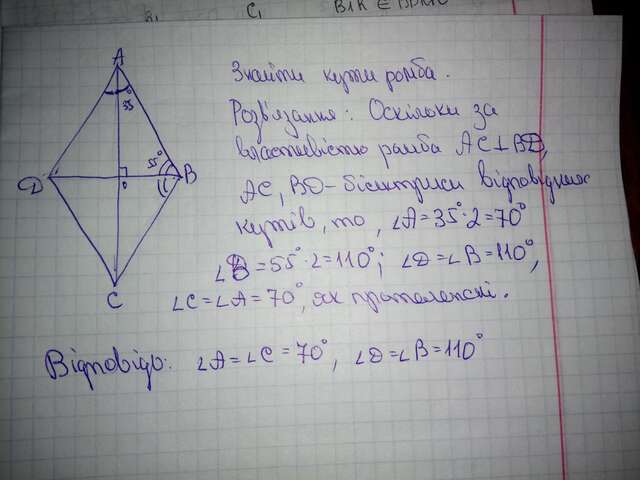 C₁
B1K ∈
A
35°
55°
D
B
o
C
Знайти кути ромба.
Розв'язання: Оскільки за
властивістю ромба AC⊥BD,
AC, BD-бісектриси відповідних
кутів, то, ∠A=35°·2=70°
∠B=55°·2=110°; ∠D=∠B=110°,
∠C=∠A=70°, як протилежні.
Відповідь: ∠A=∠C=70°, ∠D=∠B=110°